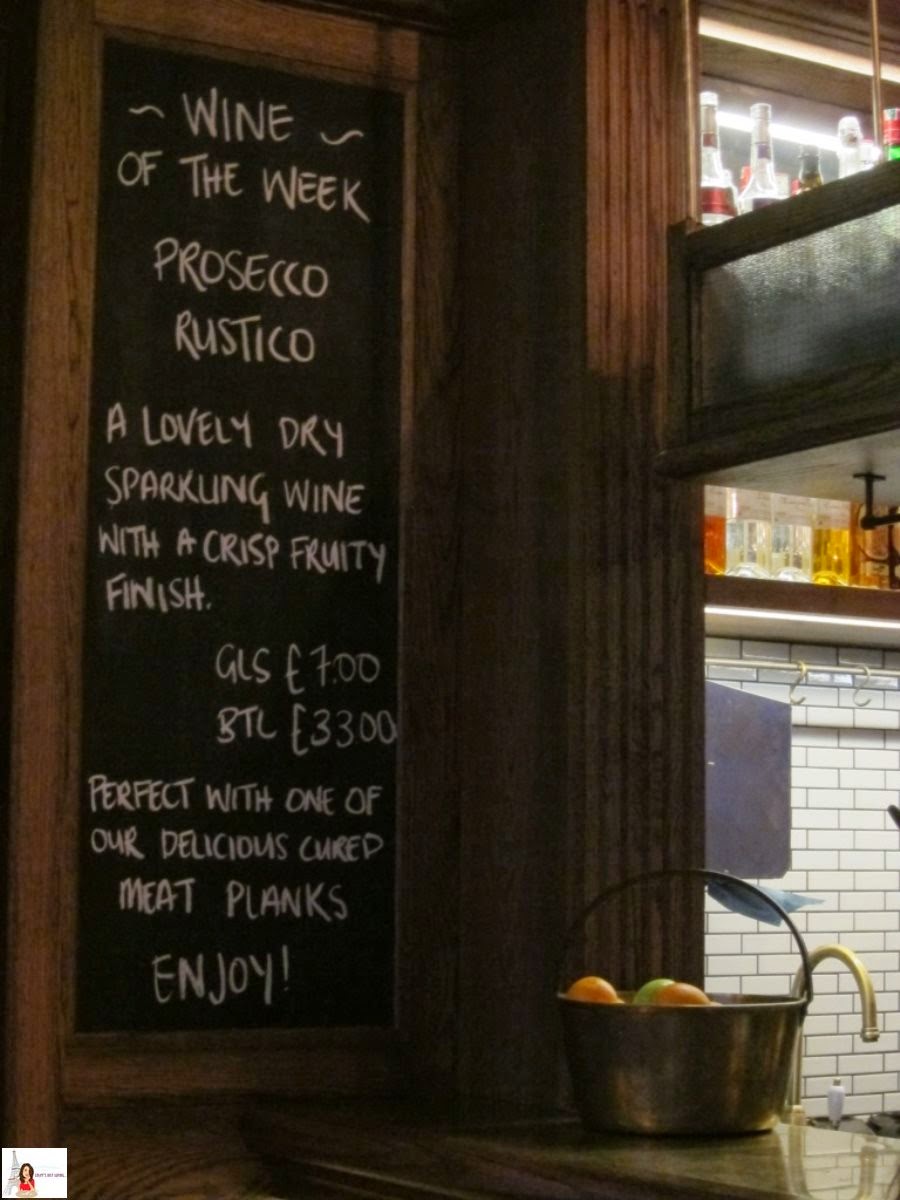 ~ WINE ~
OF THE WEEK
PROSECCO
RUSTICO
A LOVELY DRY
SPARKLING WINE
WITH A CRISP FRUITY
FINISH.
GLS £7.00
BTL £33.00
PERFECT WITH ONE OF
OUR DELICIOUS CURED
MEAT PLANKS
ENJOY!